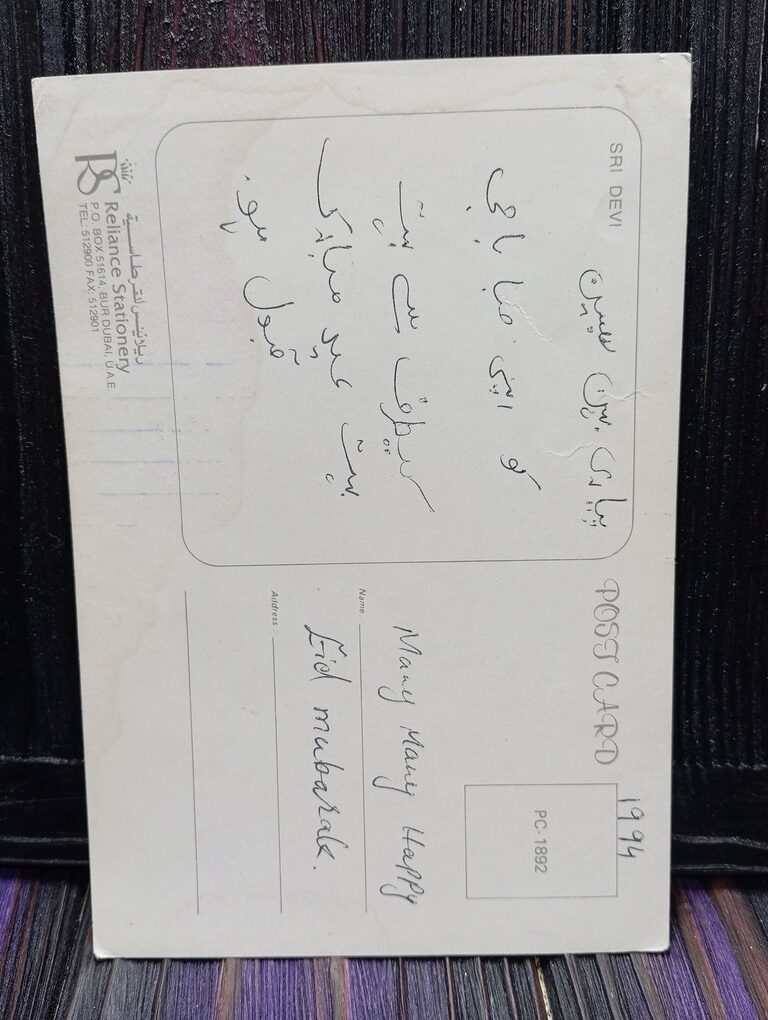 SRI DEVI
پیاری بہن سیمیں
کو اپنی صبا باجی
کیطرف سے بہت
بہت عید مبارک
قبول ہو۔
ريلاينس للقرطاسية
Reliance Stationery
P.O. BOX 51614, BUR DUBAI, U.A.E.
TEL: 512900 FAX: 512901
POST CARD
1994
PC-1892
Name
Many Many Happy
Address
Eid mubarak.